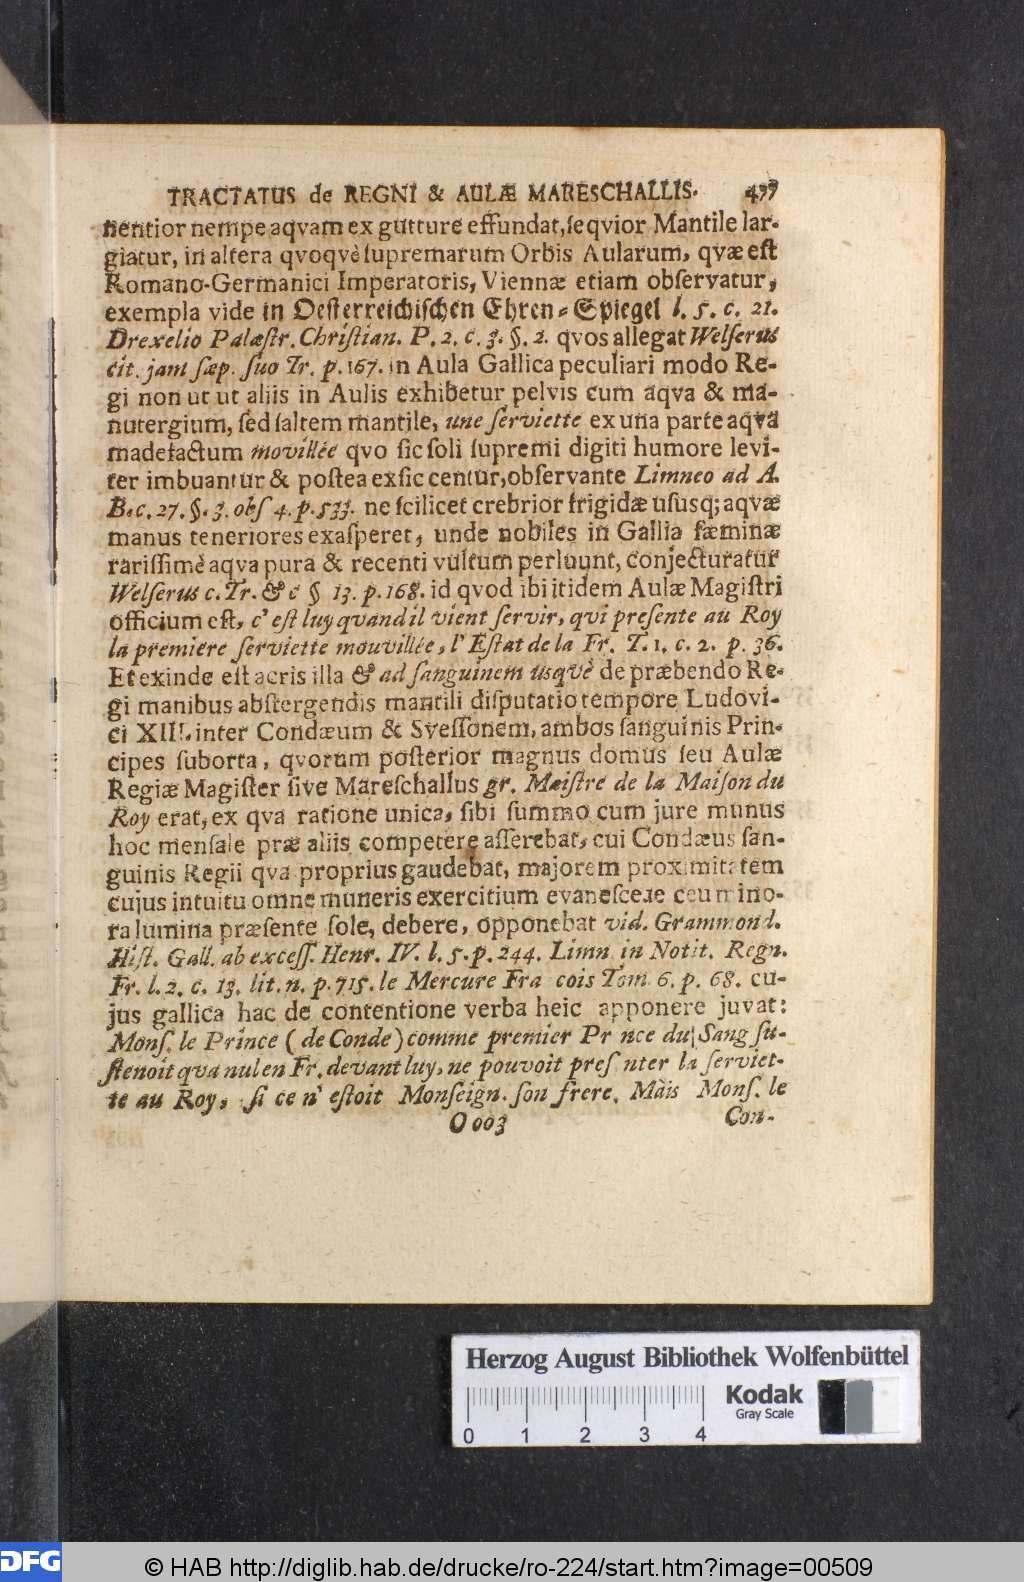 TRACTATUS de REGNI & AULÆ MARESCHALLIS. 477
nentior nempe aqvam ex gutture effundat, ſeqvior Mantile lar-
giatur, in altera qvoqvè ſupremarum Orbis Aularum, qvæ eſt
Romano-Germanici Imperatoris, Viennæ etiam obſervatur,
exempla vide in Oeſterreichiſchen Ehren-Spiegel l. 5. c. 21.
Drexelio Palæſtr. Chriſtian. P. 2. c. 3. §. 2. qvos allegat Welſerus
cit. jam ſæp. ſuo Tr. p. 167. in Aula Gallica peculiari modo Re-
gi non ut ut aliis in Aulis exhibetur pelvis cum aqva & ma-
nutergium, ſed ſaltem mantile, une ſerviette ex una parte aqva
madefactum movillée qvo ſic ſoli ſupremi digiti humore levi-
ter imbuantur & poſtea exſiccentur, obſervante Limneo ad A.
B. c. 27. §. 3. obſ 4. p. 533. ne ſcilicet crebrior frigidæ uſusq; aqvæ
manus teneriores exaſperet, unde nobiles in Gallia fæminæ
rariſſimè aqva pura & recenti vultum perluunt, conjecturatur
Welſerus c. Tr. & c § 13. p. 168. id qvod ibi itidem Aulæ Magiſtri
officium eſt, c' eſt luy qvand il vient ſervir, qvi preſente au Roy
la premiere ſerviette mouvillée, l' Eſtat de la Fr. T. 1. c. 2. p. 36.
Et exinde eſt acris illa & ad ſanguinem usqvè de præbendo Re-
gi manibus abſtergendis mantili diſputatio tempore Ludovi-
ci XIII. inter Condæum & Sveſſonem, ambos ſanguinis Prin-
cipes ſuborta, qvorum poſterior magnus domus ſeu Aulæ
Regiæ Magiſter ſive Mareſchallus gr. Maiſtre de la Maiſon du
Roy erat, ex qva ratione unica, ſibi ſummo cum jure munus
hoc menſale præ aliis competere aſſerebat, cui Condæus ſan-
guinis Regii qva proprius gaudebat, majorem proximitatem
cujus intuitu omne muneris exercitium evaneſcere ceu mino-
ra lumina præſente ſole, debere, opponebat vid. Grammond.
Hiſt. Gall. ab exceſſ. Henr. IV. l. 5. p. 244. Limn in Notit. Regn.
Fr. l. 2. c. 13. lit. n. p. 715. le Mercure Fra cois Tom 6. p. 68. cu-
jus gallica hac de contentione verba heic apponere juvat:
Monſ. le Prince (de Conde) comme premier Pr nce du Sang ſu-
ſtenoit qva nul en Fr. devant luy, ne pouvoit preſ nter la ſerviet-
te au Roy, ſi ce n' eſtoit Monſeign. ſon frere. Mais Monſ. le
O oo 3 Con-
Herzog August Bibliothek Wolfenbüttel
Kodak
Gray Scale
0 1 2 3 4
DFG
© HAB http://diglib.hab.de/drucke/ro-224/start.htm?image=00509